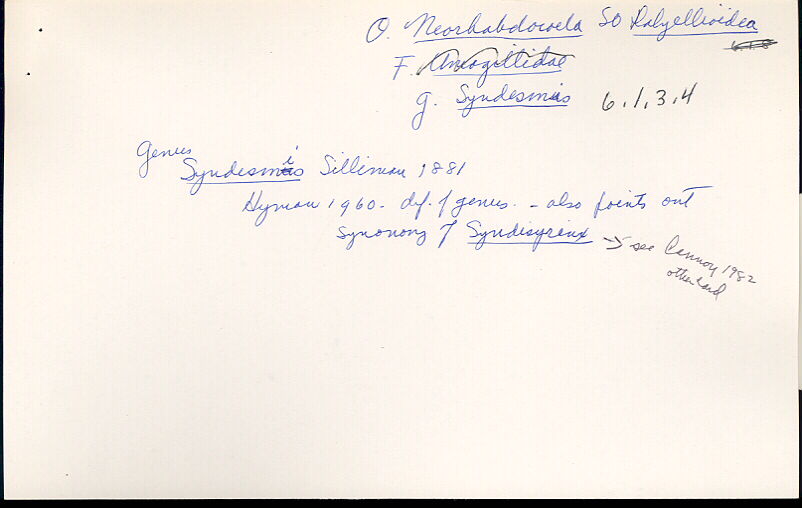 O. Neorhabdocoela SO Dalyellioidea
F. Umagillidae
g. Syndesmis 6.1.3.4
Genus
Syndesmis Silliman 1881
Hyman 1960 - def. of genus. - also points out
synonomy of Syndisyrinx → see Cannon 1982
other card